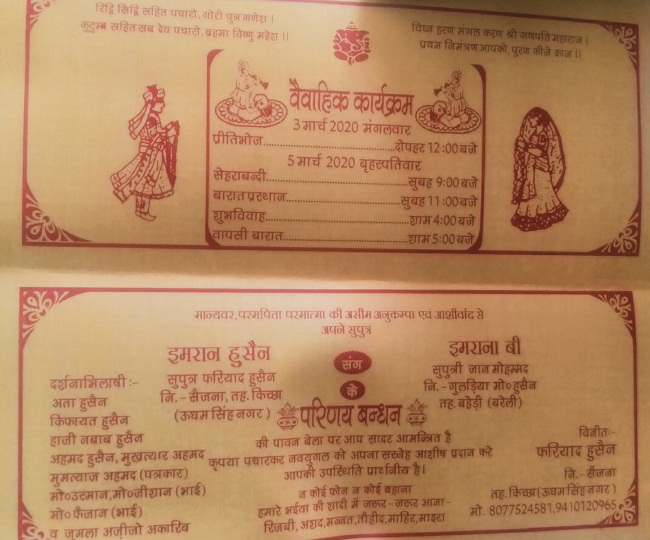 रिद्वि सिद्वि सहित पधारो, गोरी पुत्र गणेश।
कुटुम्ब सहित सब देव पधारो, ब्रहमा विष्णु महेश।।
विघ्न हरण मंगल करण श्री गणपति महाराज।
प्रथम निमंत्रण आपको, पूरण कीजे काज।।
वैवाहिक कार्यक्रम
3 मार्च 2020 मंगलवार
प्रीतिभोज....................दोपहर 12:00बजे
5 मार्च 2020 बृहस्पतिवार
सेहराबन्दी....................सुबह 9:00बजे
बारात प्रस्थान....................सुबह 11:00बजे
शुभविवाह....................शाम 4:00बजे
वापसी बारात....................शाम 5:00बजे
मान्यवर, परमपिता परमात्मा की असीम अनुकम्पा एवं आशीर्वाद से
अपने सुपुत्र
इमरान हुसैन
सुपुत्र फरियाद हुसैन
नि.- सैजना, तह. किच्छा
(ऊधम सिंह नगर)
संग
इमराना बी
सुपुत्री जान मोहम्मद
नि.- गुलड़िया मो० हुसैन
तह. बहेड़ी (बरेली)
के
परिणय बन्धन
की पावन बेला पर आप सादर आमन्त्रित है
कृपया पधारकर नवयुगल को अपना सस्नेह आशीष प्रदान करे
आपकी उपस्थिति प्रार्थनीय है।
न कोई फोन न कोई बहाना
हमारे भईया की शादी में जरूर-जरूर आना-
रिजबी, अशद, मन्नत, तौहीद, माहिर, माइरा
दर्शनाभिलाषी:-
अता हुसैन
किफायत हुसैन
हाजी नबाब हुसैन
अहमद हुसैन, मुखत्यार अहमद
मुमत्याज अहमद (पत्रकार)
मो०उस्मान, मो०जीशान (भाई)
मो० फैजान (भाई)
व जुमला अजीजो अकारिब
विनीत:-
फरियाद हुसैन
नि.- सैजना
तह. किच्छा (ऊधम सिंह नगर)
मो. 8077524581,9410120965